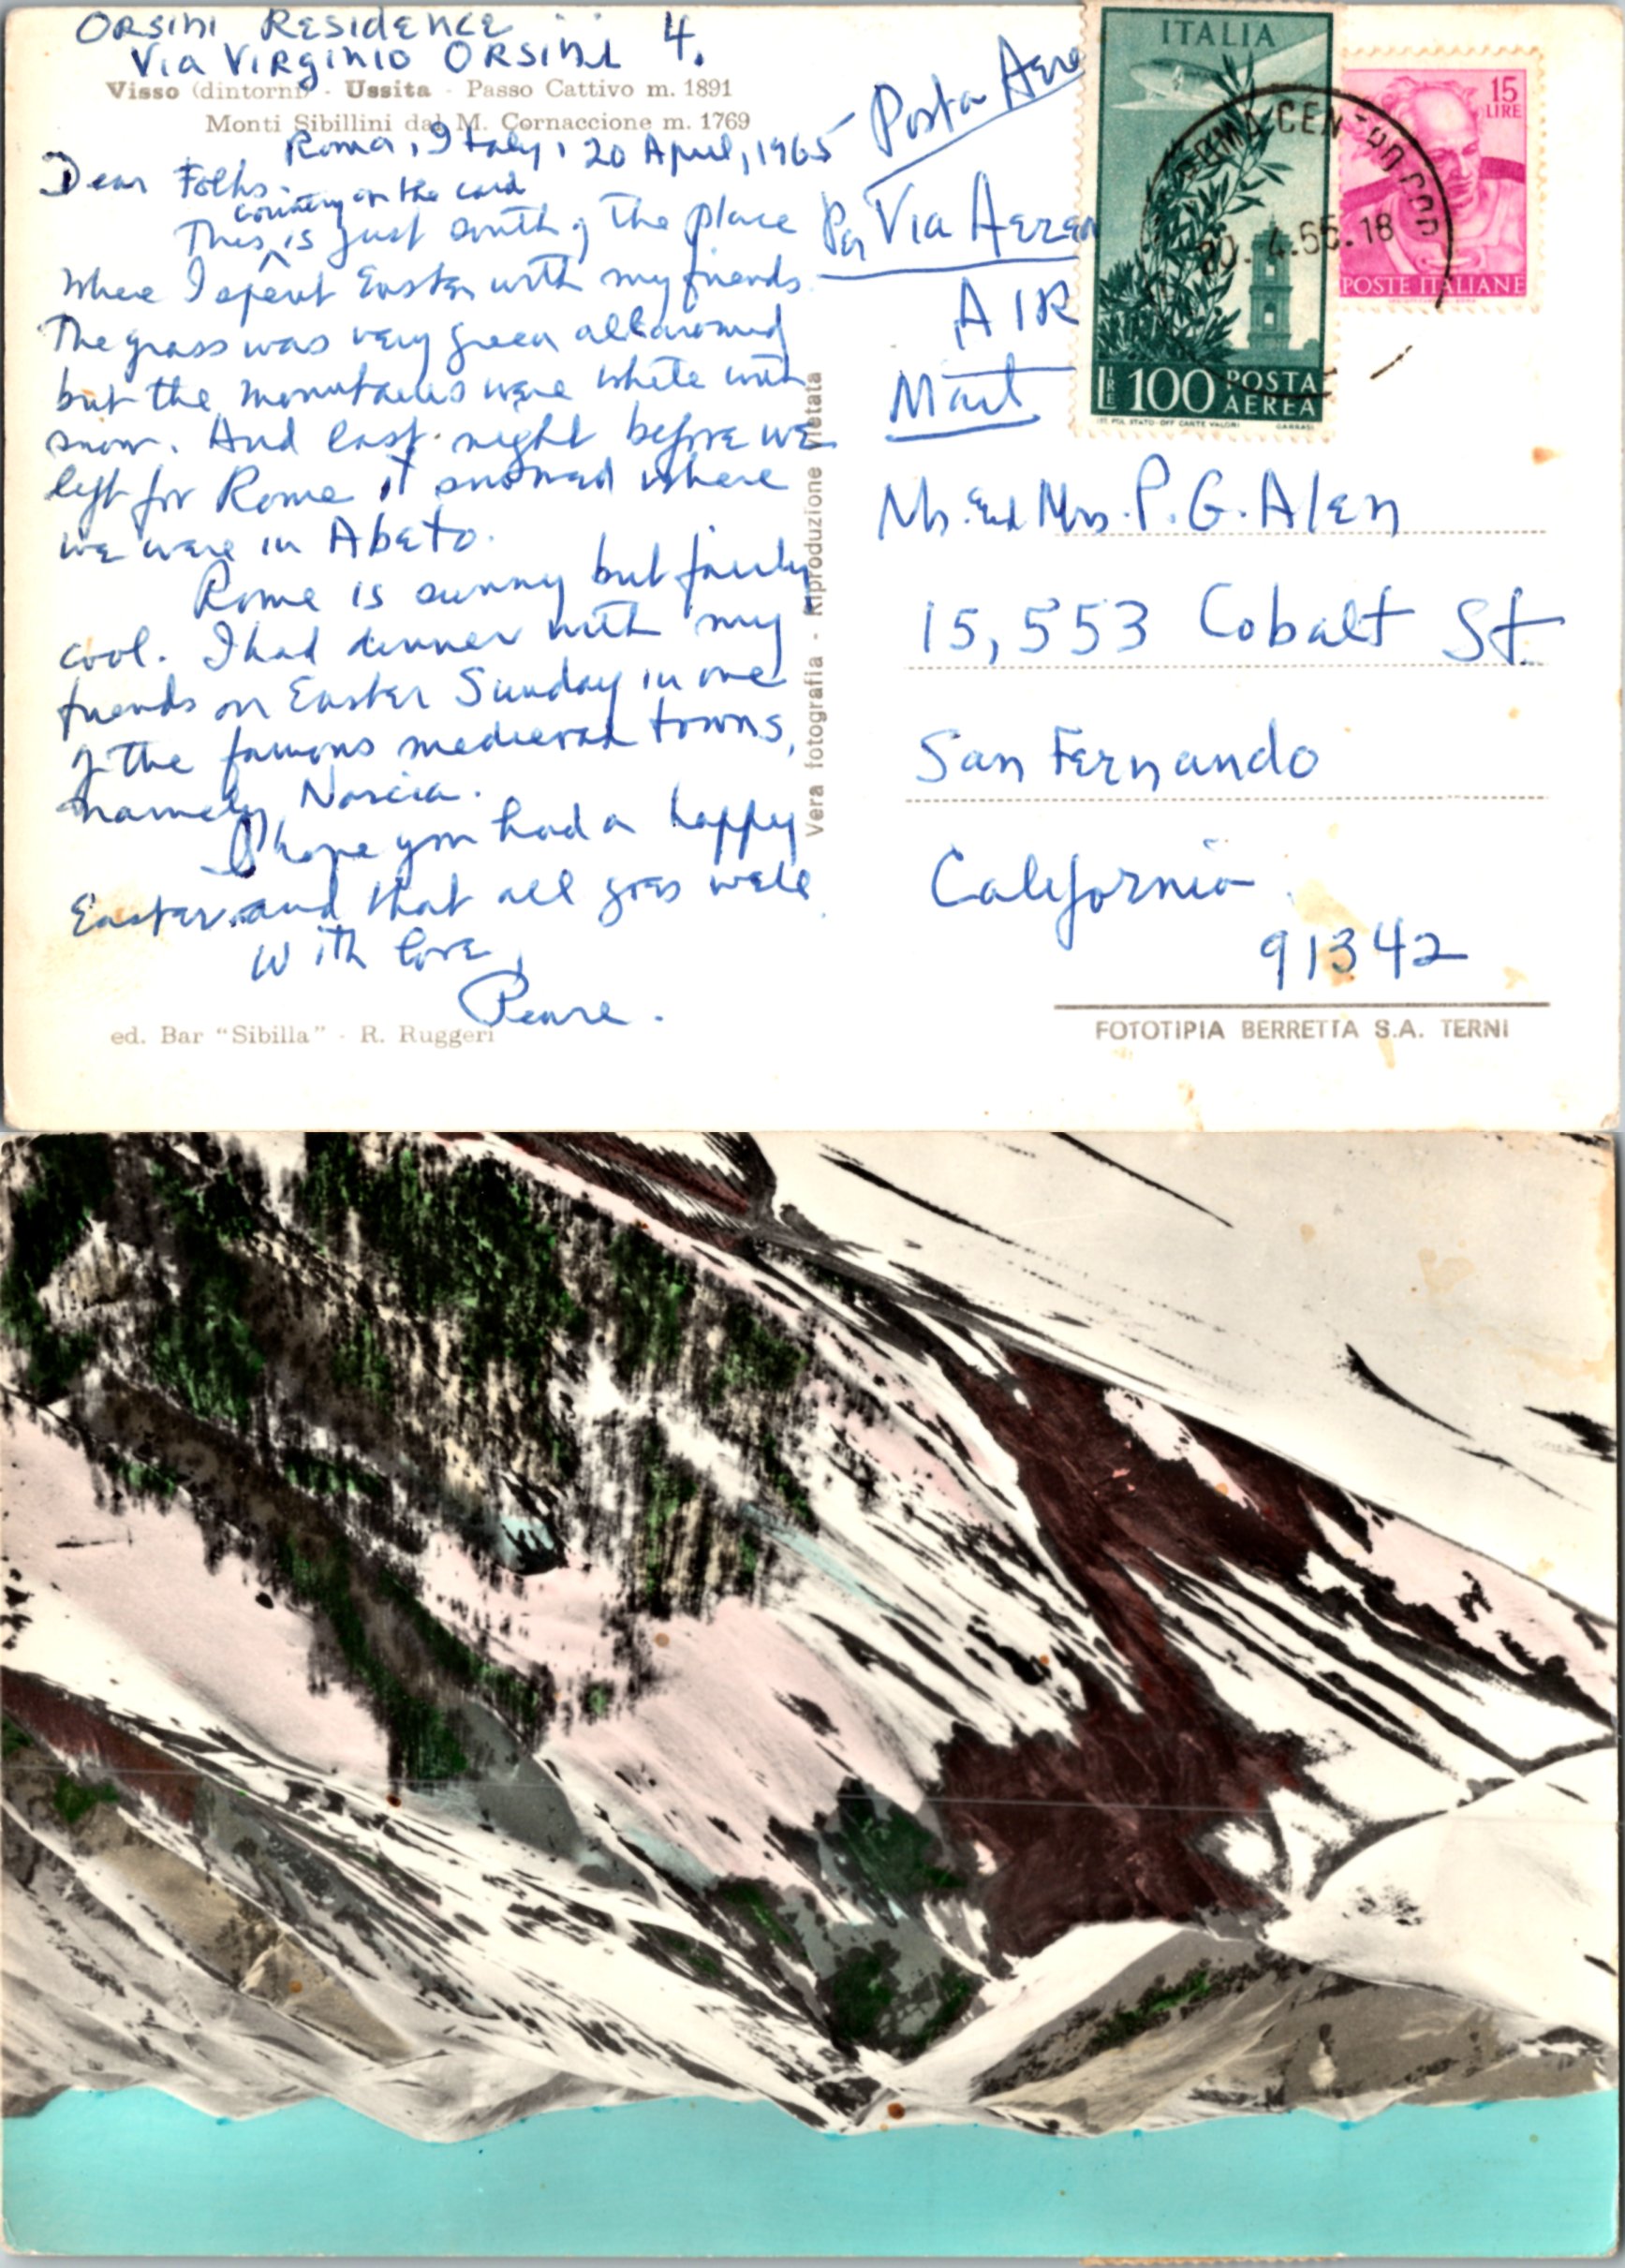 Orsini Residence
Via Virginio Orsini 4.
Visso (dintorni) - Ussita - Passo Cattivo m. 1891
Monti Sibillini dal M. Cornaccione m. 1769
Roma, Italy, 20 April, 1965
Dear Folks.
country on the card
This is just south of the place
where I spent Easter with my friends.
The grass was very green all around
but the mountains were white with
snow. And last night before we
left for Rome it snowed where
we were in Abeto.
Rome is sunny but fairly
cool. I had dinner with my
friends on Easter Sunday in one
of the famous medieval towns,
namely Norcia.
I hope you had a happy
Easter and that all goes well
With love,
ed. Bar "Sibilla" - R. Ruggeri
Vera fotografia - Riproduzione vietata
Posta Aerea
Per Via Aerea
AIR
Mail
ITALIA
LIRE 100 POSTA
AEREA
IST. POL. STATO-OFF. CARTE VALORI
15
LIRE
POSTE ITALIANE
ROMA CENTRO
20. 4.65.18
Mr. and Mrs. P. G. Alen
15,553 Cobalt St.
San Fernando
California
91342
FOTOTIPIA BERRETTA S.A. TERNI